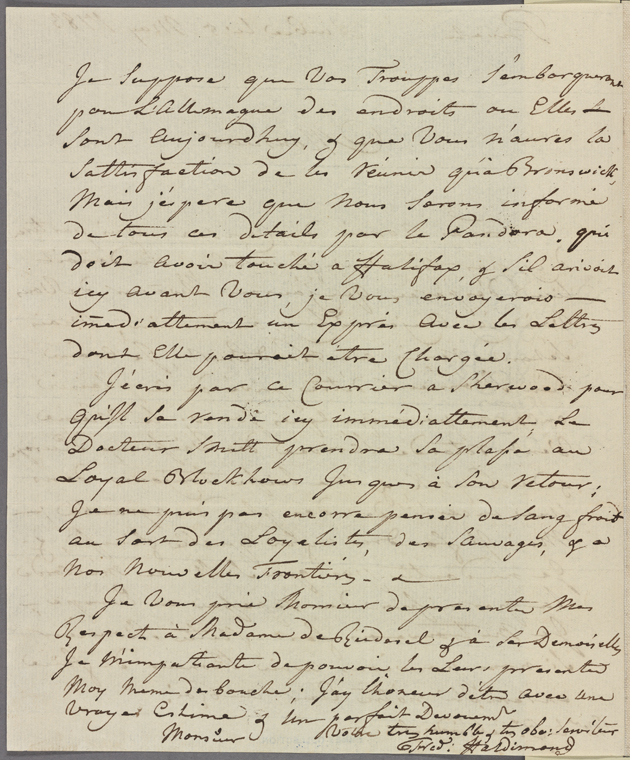 Je Suppose que Vos Trouppes s'embarqueront
pour L'Allemagne des endroits ou Elles
Sont aujourdhuy, & que Vous n'aures la
Sattisfaction de les réunir qu'à Brunswick,
Mais j'éspere que Nous Serons informé
de tous ces détails par le Pandora, qui
doit avoir touché a Halifax, & Sil arivoit
icy avant Vous, je Vous envoyerois —
imédiattement un Exprés avec les Lettres
dont Elle pouroit etre Chargée.
J'écris par ce Courrier a Sherwood pour
qu'Il Se rende icy immédiattement, Le
Docteur Smitt prendra Sa plase au
Loyal Blockhows Jusques à Son retour;
Je ne puis pas encorre penser de Sang froid
au Sort des Loyalistes, des Sauvages, & a
Nos Nouvelles Frontiérs
Je Vous prie Monsieur de presenter Mes
Respect à Madame de Riedesel & à Ses Demoiselles
Je M'impatiente de pouvoir les Leurs presenter
Moy Meme de bouche; J'ay l'honeur d'être avec une
Vraye Estime & Un parfait Devouemt
Monsieur Votre tres humble & tres obe: Serviteur
Fred: Haldimand